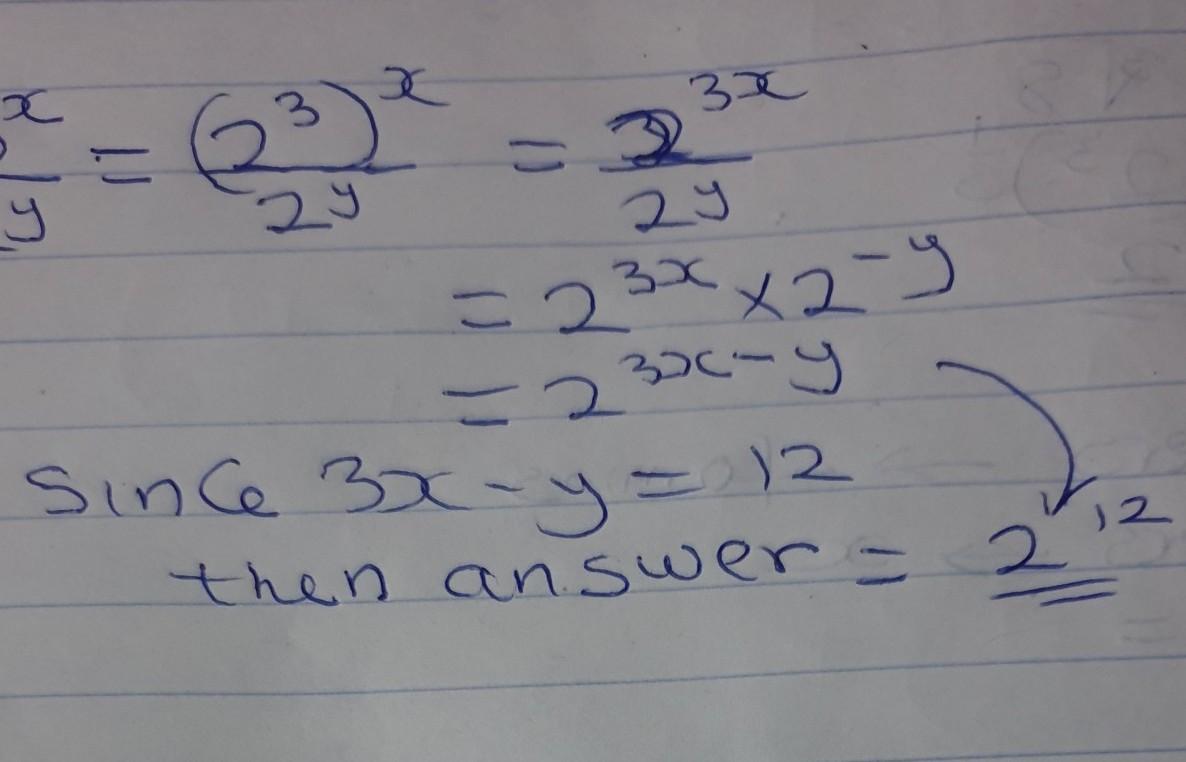 x/y = (2^3)^x/2^y = 2^3x/2^y
= 2^3x × 2^-y
= 2^3x-y
Since 3x - y = 12
then answer = 2^12